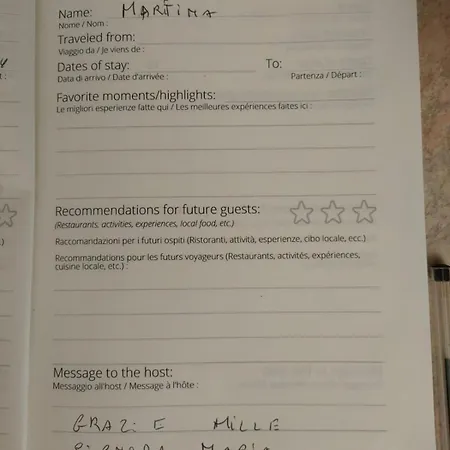 Name: MARTINA
Nome / Nom :
Traveled from:
Viaggio da / Je viens de :
Dates of stay: To:
Data di arrivo / Date d'arrivée : Partenza / Départ :
Favorite moments/highlights:
Le migliori esperienze fatte qui / Les meilleures expériences faites ici :
Recommendations for future guests:
(Restaurants, activities, experiences, local food, etc.)
Raccomandazioni per i futuri ospiti (Ristoranti, attività, esperienze, cibo locale, ecc.)
Recommandations pour les futurs voyageurs (Restaurants, activités, expériences,
cuisine locale, etc.) :
Message to the host:
Messaggio all'host / Message à l'hôte :
GRAZIE MILLE
SIGNORA MARIA